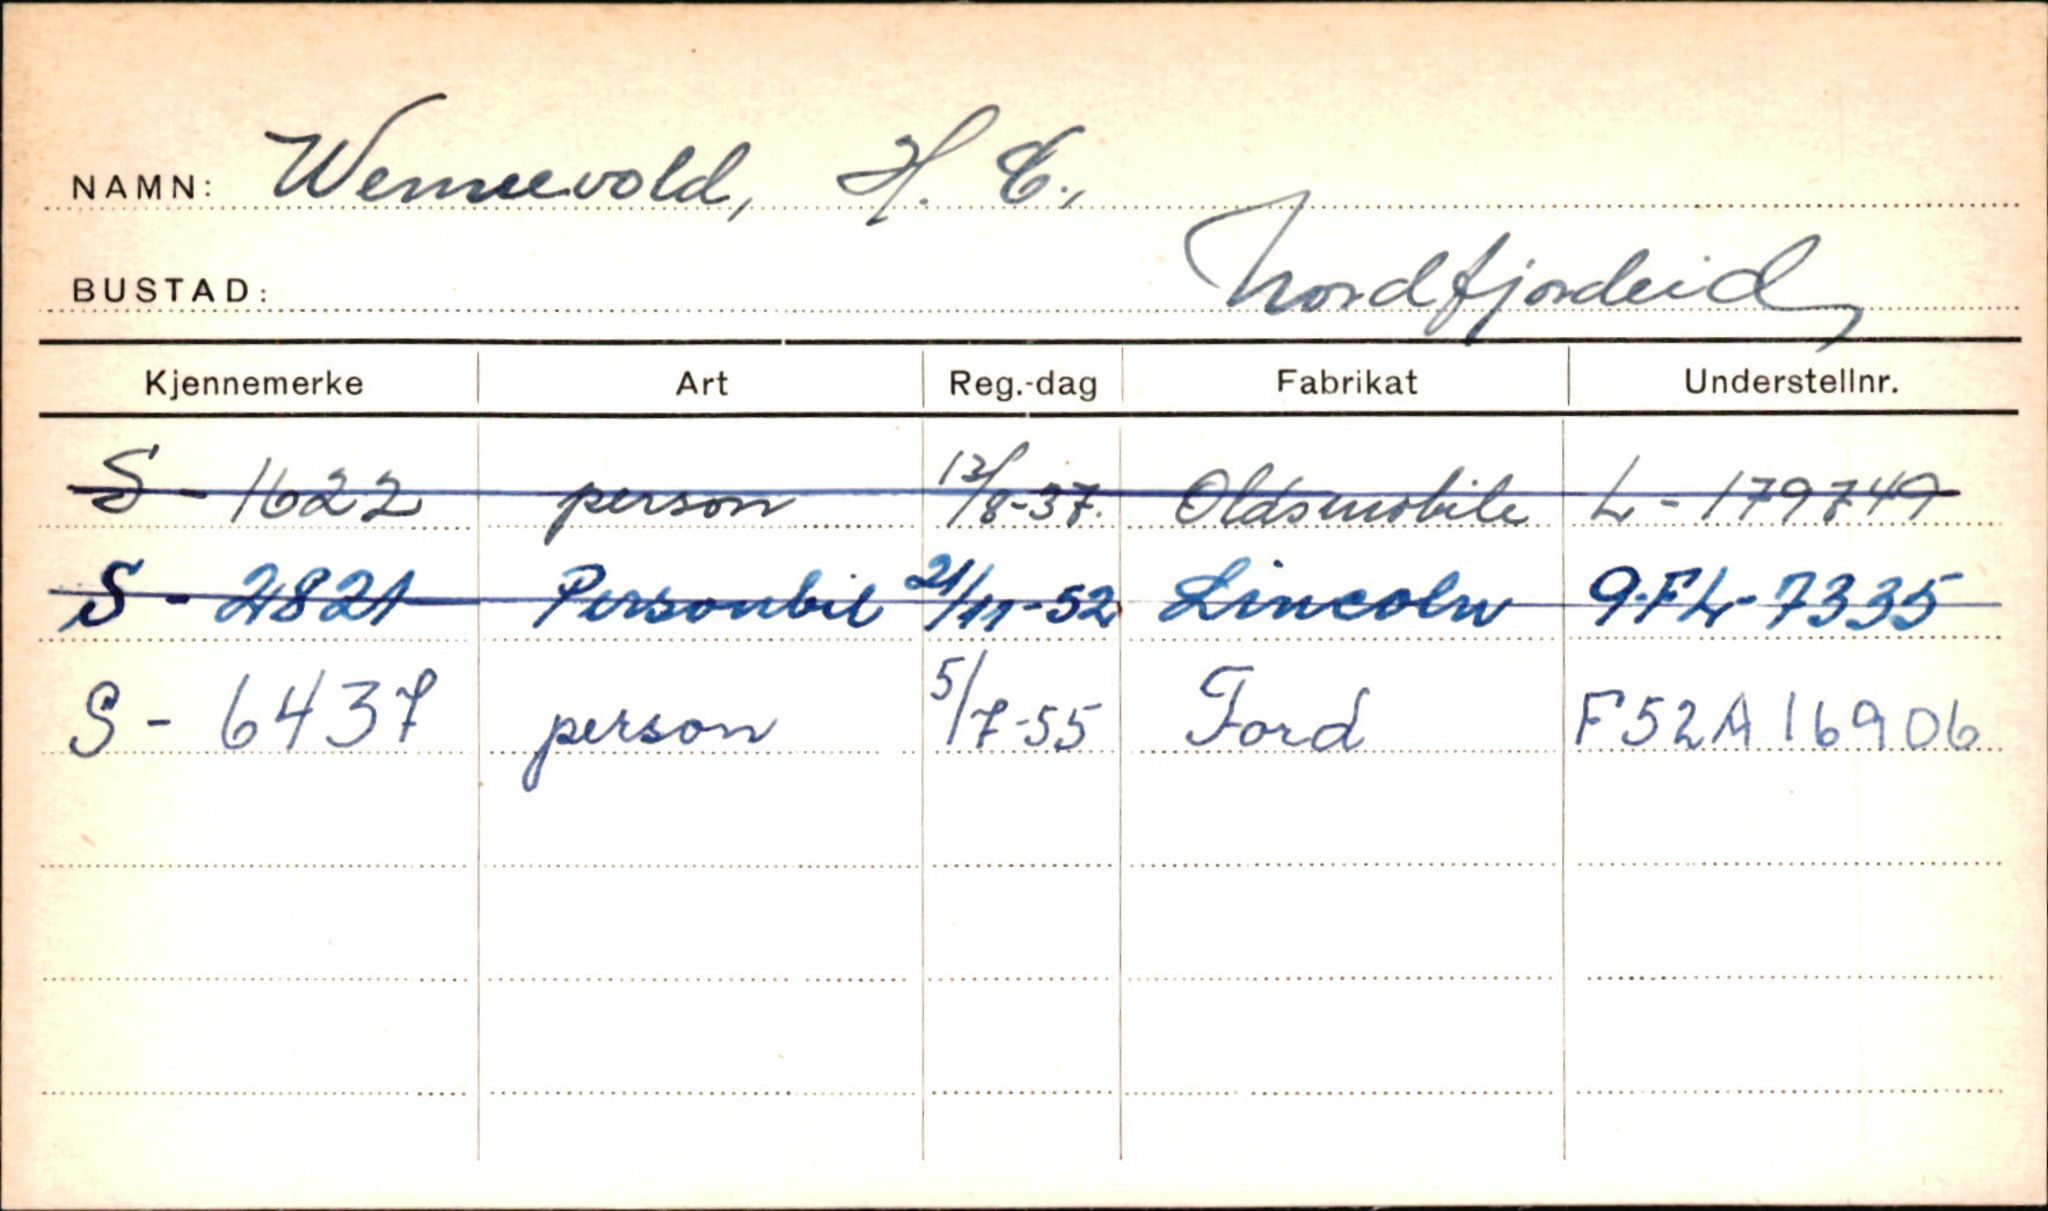 NAMN: Wennevold, H. E.,
BUSTAD: Nordfjordeid,
Kjennemerke Art Reg.-dag Fabrikat Understellnr.
S - 1622 person 12/8-37. Oldsmobile L - 179749
S - 2821 Personbil 21/11-52 Lincoln 9.FL-7335
S - 6437 person 5/7-55 Ford F52A16906